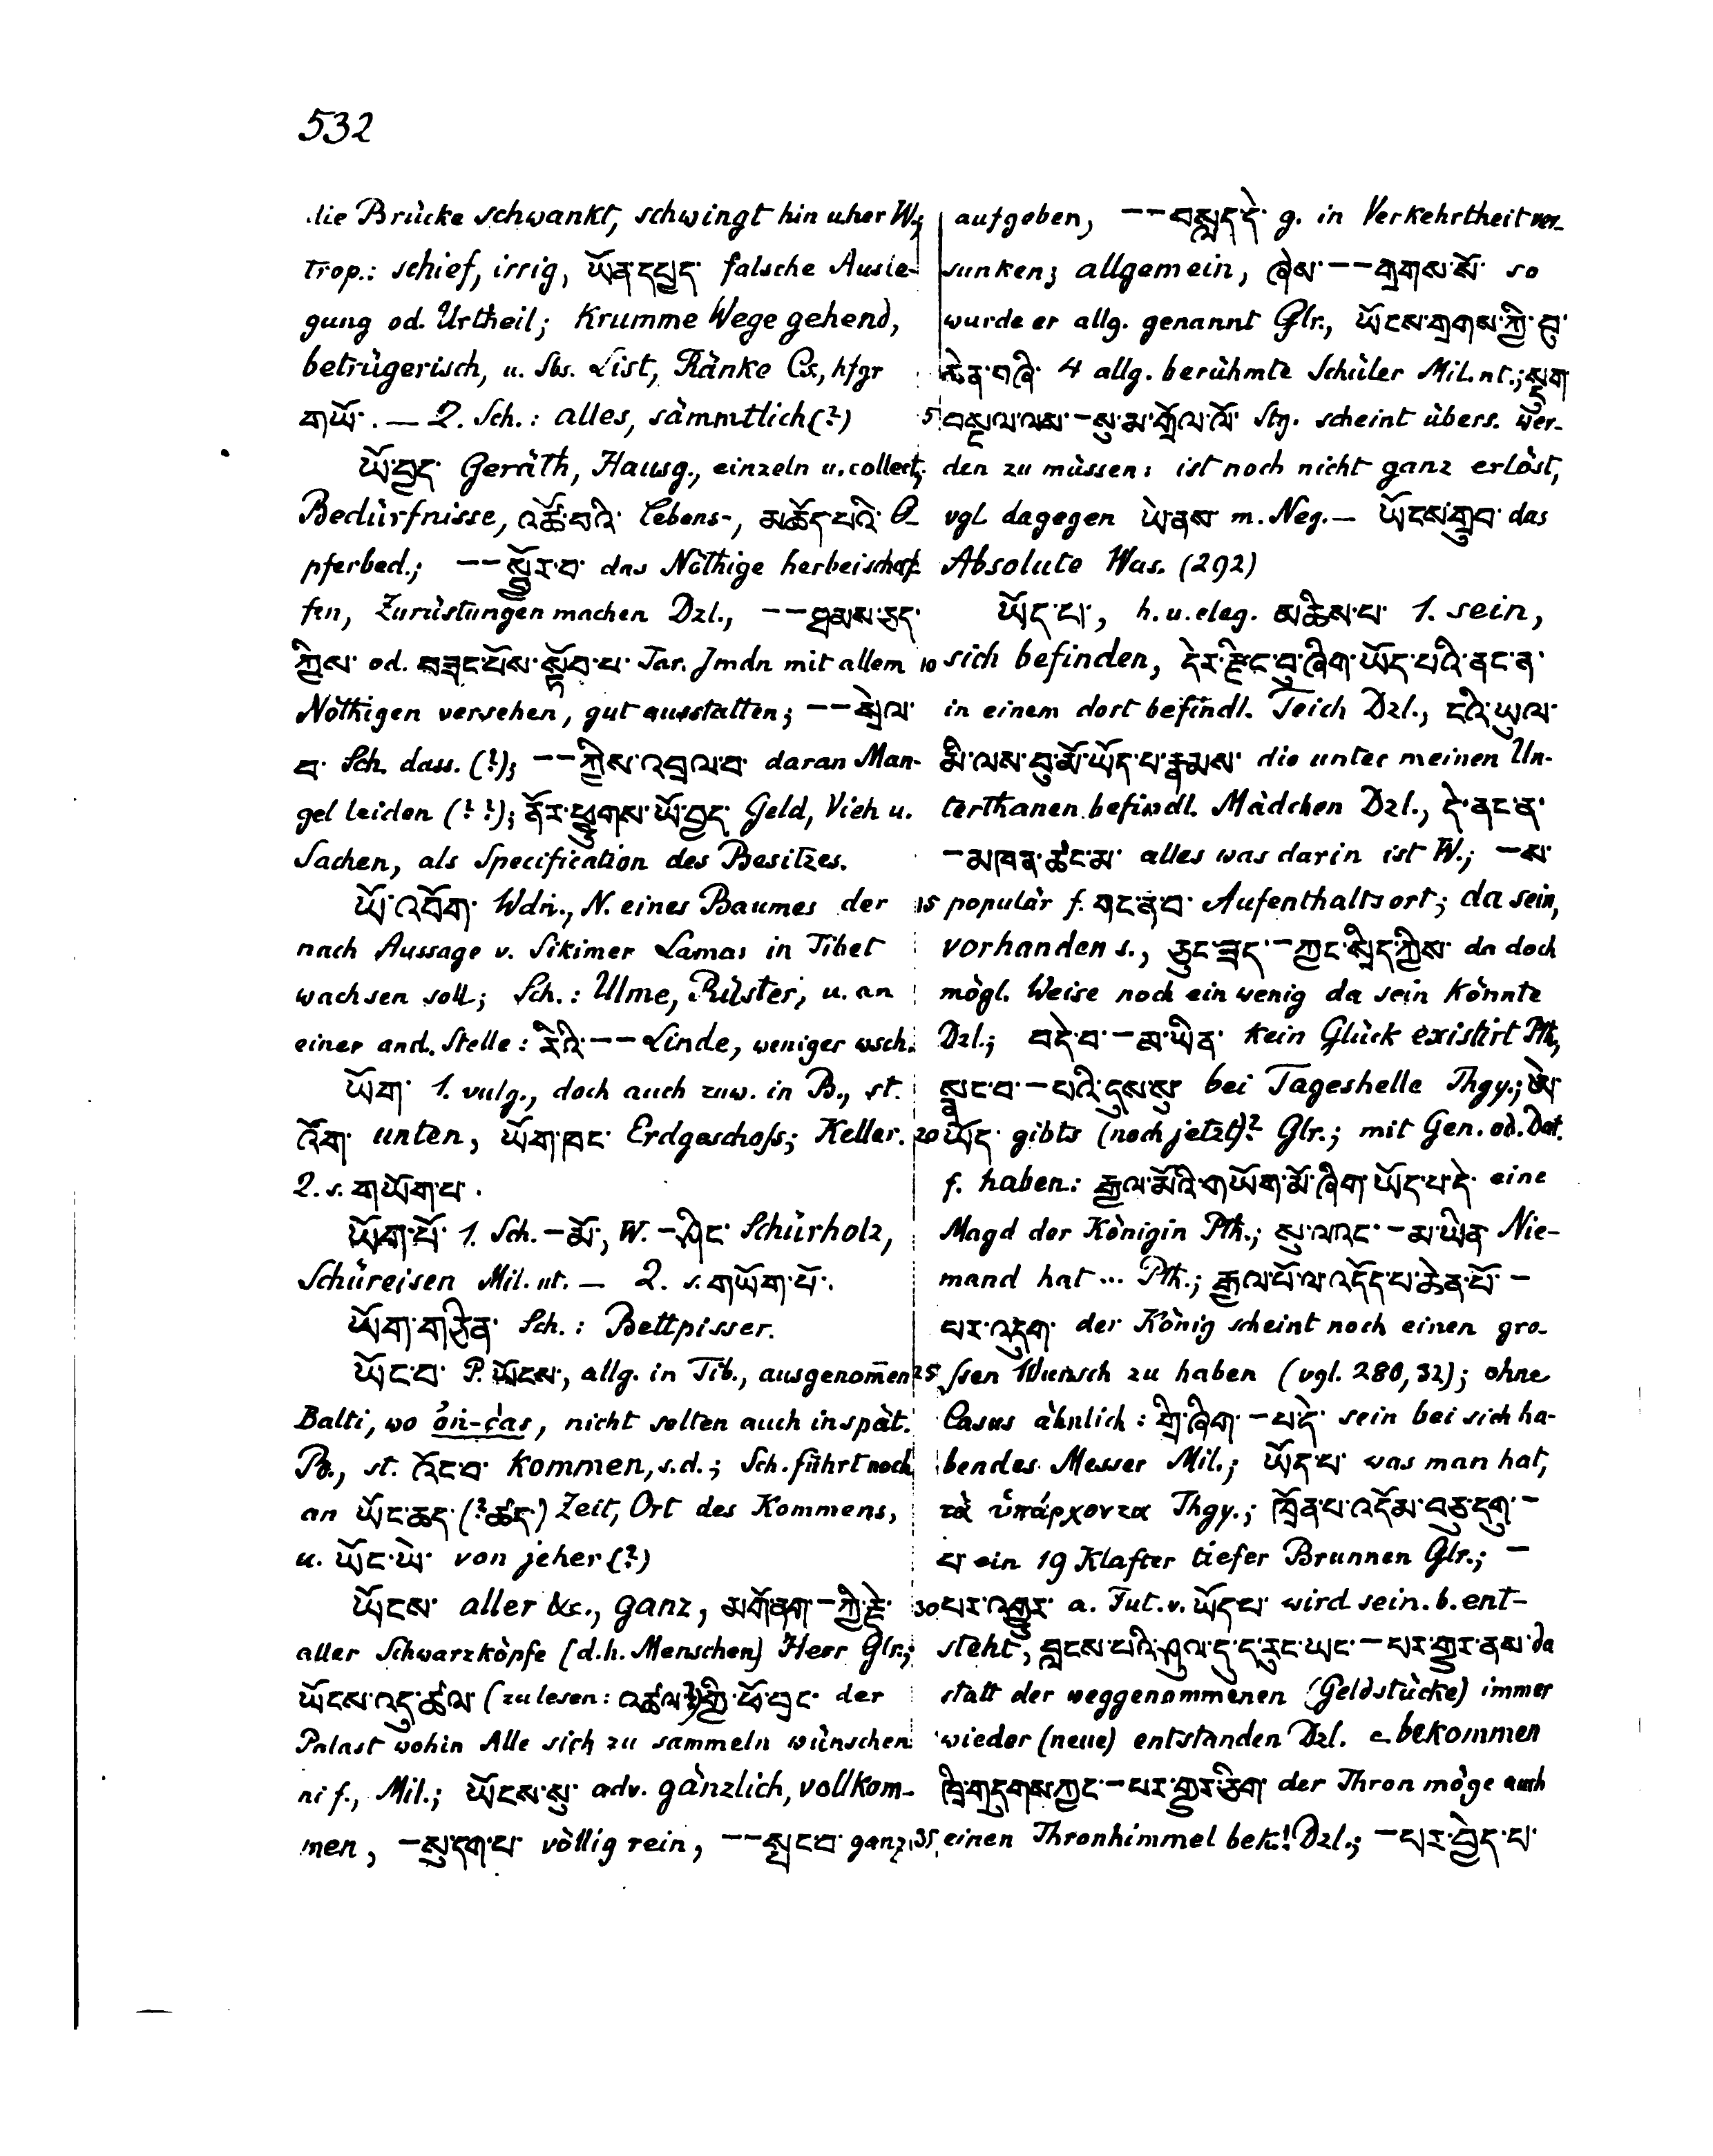 532
die Brücke schwankt, schwingt hin u. her W.;
trop.: schief, irrig, ཡོན་དཔྱད་ falsche Ausle-
gung od. Urtheil; krumme Wege gehend,
betrügerisch, u. Sbs. List, Ränke Cs., hfgr
གཡོ་. — 2. Sch.: alles, sämmtlich (?)
ཡོ་བྱད་ Geräth, Hausg., einzeln u. collect.;
Bedürfnisse, འཚོ་བའི་ Lebens-, མཆོད་པའི་ O-
pferbed.; –– སྦྱོར་བ་ das Nöthige herbeischaf-
fen, Zurüstungen machen Dzl., –– ཐམས་ཅད་
ཀྱིས་ od. བཟང་པོས་སྟོབ་པ་ Tar. Jmdn mit allem
Nöthigen versehen, gut ausstatten; ––
བ་ Sch. dass. (?); –– ཀྱིས་འབྲལ་བ་ daran Man-
gel leiden (??); ནོར་ཕྱུགས་ཡོ་བྱད་ Geld, Vieh u.
Sachen, als Specification des Besitzes.
ཡོ་འབོག་ Wdn., N. eines Baumes der
nach Aussage v. Sikimer Lamas in Tibet
wachsen soll; Sch.: Ulme, Rüster, u. an
einer and. Stelle: རིའི་ –– Linde, weniger wsch.
ཡོག་ 1. vulg., doch auch zuw. in B., st.
འོག་ unten, ཡོག་ཁང་ Erdgeschoss; Keller.
2. s. གཡོག་པ་.
ཡོག་པོ་ 1. Sch. – མོ་, W. – ཤིང་ Schürholz,
Schüreisen Mil. nt. — 2. s. གཡོག་པོ་.
ཡོག་གཅིན་ Sch.: Bettpisser.
ཡོང་བ་ P. ཡོངས་, allg. in Tib., ausgenom̄en
Balti, wo oṅ-ćas, nicht selten auch in spät.
B., st. འོང་བ་ kommen, s.d.; Sch. führt noch
an ཡོང་ཆད་ (? ཚད་) Zeit, Ort des Kommens,
u. ཡོང་ཡེ་ von jeher (?)
ཡོངས་ aller &c., ganz, མགོ་ནག་ – ཀྱི་རྗེ་
aller Schwarzköpfe (d.h. Menschen) Herr Glr.;
ཡོངས་འདུ་ཚལ་ (zu lesen: འཚལ་?) གྱི་ཕོ་བྲང་ der
Palast wohin Alle sich zu sammeln wünschen
ni f., Mil.; ཡོངས་སུ་ adv. gänzlich, vollkom-
men, – སུ་དག་པ་ völlig rein, –– སྤང་བ་ ganz
aufgeben, –– བསླད་དེ་ g. in Verkehrtheit ver-
sunken; allgemein, ཞེས་ –– གྲགས་སོ་ so
wurde er allg. genannt Glr., ཡོངས་གྲགས་ཀྱི་བུ་
ཆེན་བཞི་ 4 allg. berühmte Schüler Mil. nt.; སྡུག་
5 བསྔལ་ལས་ – སུ་མ་གྲོལ་ལོ་ Stg. scheint übers. wer-
den zu müssen: ist noch nicht ganz erlöst,
vgl. dagegen ཡེ་ནས་ m. Neg. — ཡོངས་གྲུབ་ das
Absolute Was. (292)
ཡོད་པ་, h. u. eleg. མཆིས་པ་ 1. sein,
10 sich befinden, དེར་རྫིང་བུ་ཞིག་ཡོད་པའི་ནང་ན་
in einem dort befindl. Teich Dzl., ངའི་ཡུལ་
མི་ལས་བུ་མོ་ཡོད་པ་རྣམས་ die unter meinen Un-
terthanen befindl. Mädchen Dzl., དེ་ནང་ན་
– མཁན་ཚང་མ་ alles was darin ist W.; – ས་
15 populär f. གང་ན་བ་ Aufenthaltsort; da sein,
vorhanden s., ཅུང་ཟད་ – ཀྱང་སྲིད་ཀྱིས་ da doch
mögl. Weise noch ein wenig da sein könnte
Dzl.; བདེ་བ་ – མ་ཡིན་ kein Glück existirt Pth.,
སྣང་བ་ – པའི་དུས་སུ་ bei Tageshelle Thgy.; ཨེ་
20 ཡོད་ gibts (noch jetzt)? Glr.; mit Gen. od. Dat.
f. haben: རྒྱལ་མོའི་གཡོག་མོ་ཞིག་ཡོད་པ་དེ་ eine
Magd der Königin Pth.; སུ་ལའང་ – མ་ཡིན་ Nie-
mand hat ... Pth.; རྒྱལ་པོ་ལ་འདོད་པ་ཆེན་པོ་ –
པར་འདུག་ der König scheint noch einen gro-
25 ssen Wunsch zu haben (vgl. 280, 32); ohne
Casus ähnlich: གྲི་ཞིག་ – པ་དེ་ sein bei sich ha-
bendes Messer Mil.; ཡོད་པ་ was man hat,
τὰ ὑπάρχοντα Thgy.; ཁྲོན་པ་འདོམ་བཅུ་དགུ་ –
པ་ ein 19 Klafter tiefer Brunnen Glr.; –
30 པར་འགྱུར་ a. Fut. v. ཡོད་པ་ wird sein. b. ent-
steht, བླངས་པའི་ཤུལ་དུ་ད་རུང་ཡང་ – པར་གྱུར་ནས་ da
statt der weggenommenen (Geldstücke) immer
wieder (neue) entstanden Dzl. c. bekommen
ཁྲི་གདུགས་ཀྱང་ – པར་གྱུར་ཅིག་ der Thron möge auch
35 einen Thronhimmel bek.! Dzl.; – པར་བྱེད་པ་